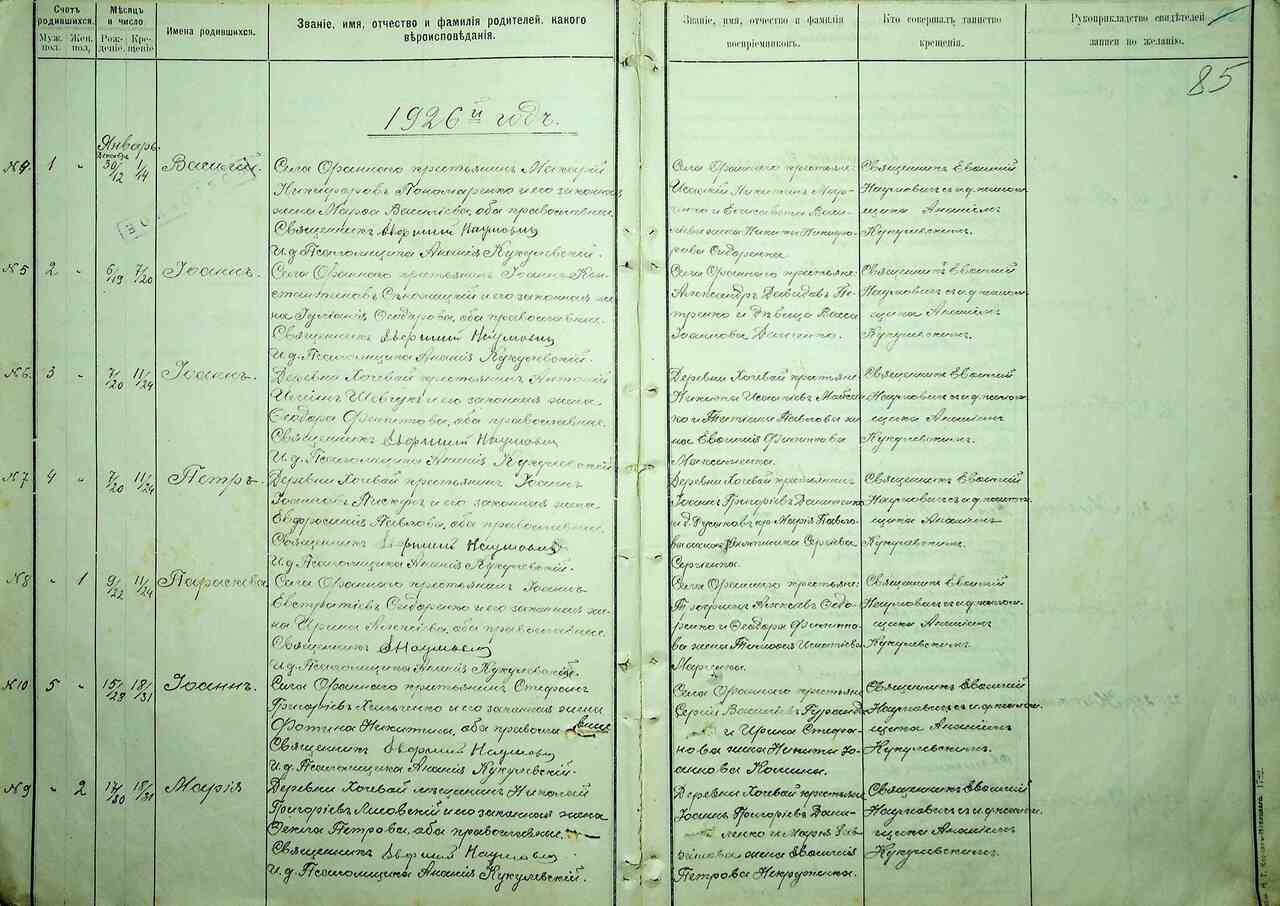 Счетъ родившихся.
Муж. пол.
Жен. пол.
Мѣсяцъ и число
Рож- деніе.
Кре- щеніе
Имена родившихся.
Званіе, имя, отчество и фамилія родителей. какого
вѣроисповѣданія.
Званіе, имя, отчество и фамилія
воспріемниковъ.
Кто совершалъ таинство
крещенія.
Рукоприкладство свидѣтелей
записи по желанію.
85
1926й годъ.
Январь
№4. 1 " 30/12 1/14 Василій.
Села Оранного крестьянинъ Макарій
Никифоровъ Пономаренко и его законная
жена Марѳа Василіева, оба православные.
Священникъ Евѳимій Наумовичъ
И. д. Псаломщика Ананія Кукулевскій.
Села Оранного крестьяне:
Никитинъ
и Елисавета
жена Никиты Никифо-
рова Сидоренка.
Священникъ Евѳимій
Наумовичъ съ и. д. псалом-
щика Ананіемъ
Кукулевскимъ.
№5 2 " 6/19 7/20 Іоаннъ.
Села Оранного крестьянинъ Іоаннъ Кон-
стантиновъ и его законная же-
на Іуліанія Ѳеодорова, оба православные.
Священникъ Евѳимій Наумовичъ
И. д. Псаломщика Ананія Кукулевскій.
Села Оранного крестьяне:
Александръ Давидовъ Пе-
тренко и дѣвица Васса
Іоаннова Даценко.
Священникъ Евѳимій
Наумовичъ съ и. д. псалом-
щика Ананіемъ
Кукулевскимъ.
№6. 3 " 7/20 11/24 Іоаннъ.
Деревни Хочевай крестьянинъ Антоній
Шевчук и его законная жена
Ѳеодора Филиппова, оба православные.
Священникъ Евѳимій Наумовичъ
И. д. Псаломщика Ананія Кукулевскій
Деревни Хочевай крестьяне
Никита
ко и Павлова же-
на Евѳимія Филиппова
Максименка.
Священникъ Евѳимій
Наумовичъ съ и. д. псалом-
щика Ананіемъ
Кукулевскимъ.
№7 4 " 7/20 11/24 Петръ.
Деревни Хочевай крестьянинъ Іоаннъ
Іоанновъ Пискунъ и его законная жена
Евфросинія Павлова, оба православные.
Священникъ Евѳимій Наумовичъ
И. д. Псаломщика Ананія Кукулевскій.
Деревни Хочевай крестьянинъ
Іоаннъ Григоріевъ Даниленко
и д. кр. Марія Павло-
ва жена Сергіева
Сергіенка.
Священникъ Евѳимій
Наумовичъ съ и. д. псалом-
щика Ананіемъ
Кукулевскимъ.
№8 " 1 9/22 11/24 Параскева
Села Оранного крестьянинъ Іоаннъ
Евстратіевъ Сидоренко и его законная же-
на Ирина Алексіева, оба православные.
Священникъ Е Наумовичъ
И. д. Псаломщика Ананія Кукулевскій.
Села Оранного крестьяне:
Сидо-
ренко и Ѳеодора Филиппо-
ва жена Игнатіева
Марченка.
Священникъ Евѳимій
Наумовичъ съ и. д. псалом-
щика Ананіемъ
Кукулевскимъ.
№10 5 " 15/28 18/31 Іоаннъ.
Села Оранного крестьянинъ Стефанъ
Григоріевъ Хильченко и его законная жена
Фотина Никитина, оба православные
Священникъ Евѳимій Наумовичъ
И. д. Псаломщика Ананія Кукулевскій.
Села Оранного крестьяне
Сергій Василіевъ
и Ирина Стефа-
нова жена Никиты Іо-
аннова Калины.
Священникъ Евѳимій
Наумовичъ съ и. д. псалом-
щика Ананіемъ
Кукулевскимъ.
№9 " 2 17/30 18/31 Марія
Деревни Хочевай мѣщанинъ Николай
Григоріевъ Лисовскій и его законная жена
Петрова, оба православные.
Священникъ Евѳимій Наумовичъ
И. д. Псаломщика Ананія Кукулевскій.
Деревни Хочевай крестьяне
Іоаннъ Григоріевъ Дани-
ленко и Марія
жена Евѳимія
Петрова
Священникъ Евѳимій
Наумовичъ съ и. д. псалом-
щика Ананіемъ
Кукулевскимъ.